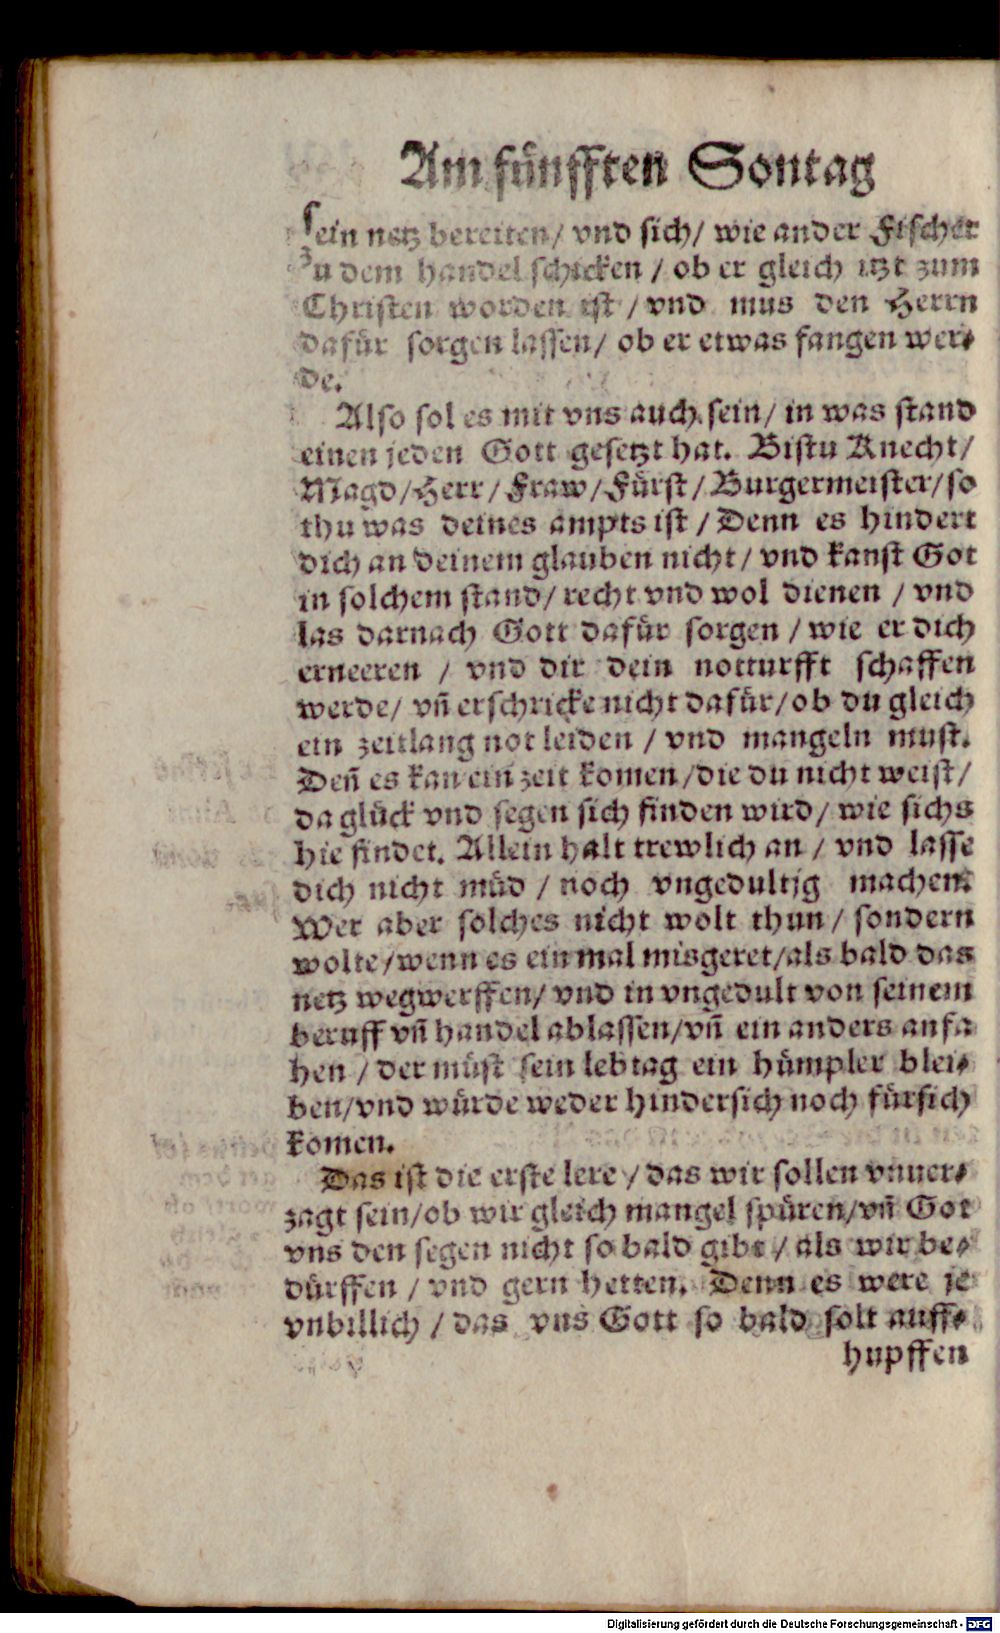 Am fünfften Sontag
sein netz bereiten/ vnd sich/ wie ander Fischer
zu dem handel schicken / ob er gleich itzt zum
Christen worden ist / vnd mus den Herrn
dafür sorgen lassen/ ob er etwas fangen wer⸗
de.
Also sol es mit vns auch sein/ in was stand
einen jeden Gott gesetzt hat. Bistu Knecht/
Magd/Herr/Fraw/Fürst/Burgermeister/so
thu was deines ampts ist / Denn es hindert
dich an deinem glauben nicht/ vnd kanst Got
in solchem stand/ recht vnd wol dienen / vnd
las darnach Gott dafür sorgen / wie er dich
erneeren / vnd dir dein notturfft schaffen
werde/ vñ erschricke nicht dafür/ob du gleich
ein zeitlang not leiden / vnd mangeln must.
Deñ es kan ein zeit komen/die du nicht weist/
da glück vnd segen sich finden wird/ wie sichs
hie findet. Allein halt trewlich an / vnd lasse
dich nicht müd / noch vngedultig machen.
Wer aber solches nicht wolt thun / sondern
wolte/wenn es ein mal misgeret/als bald das
netz wegwerffen/ vnd in vngedult von seinem
beruff vñ handel ablassen/vñ ein anders anfa
hen / der müst sein lebtag ein hümpler blei⸗
ben/vnd würde weder hindersich noch fürsich
komen.
Das ist die erste lere / das wir sollen vnuer⸗
zagt sein/ob wir gleich mangel spüren/vñ Got
vns den segen nicht so bald gibt / als wir be⸗
dürffen / vnd gern hetten. Denn es were je
vnbillich / das vns Gott so bald solt auff⸗
hupffen
Digitalisierung gefördert durch die Deutsche Forschungsgemeinschaft - DFG